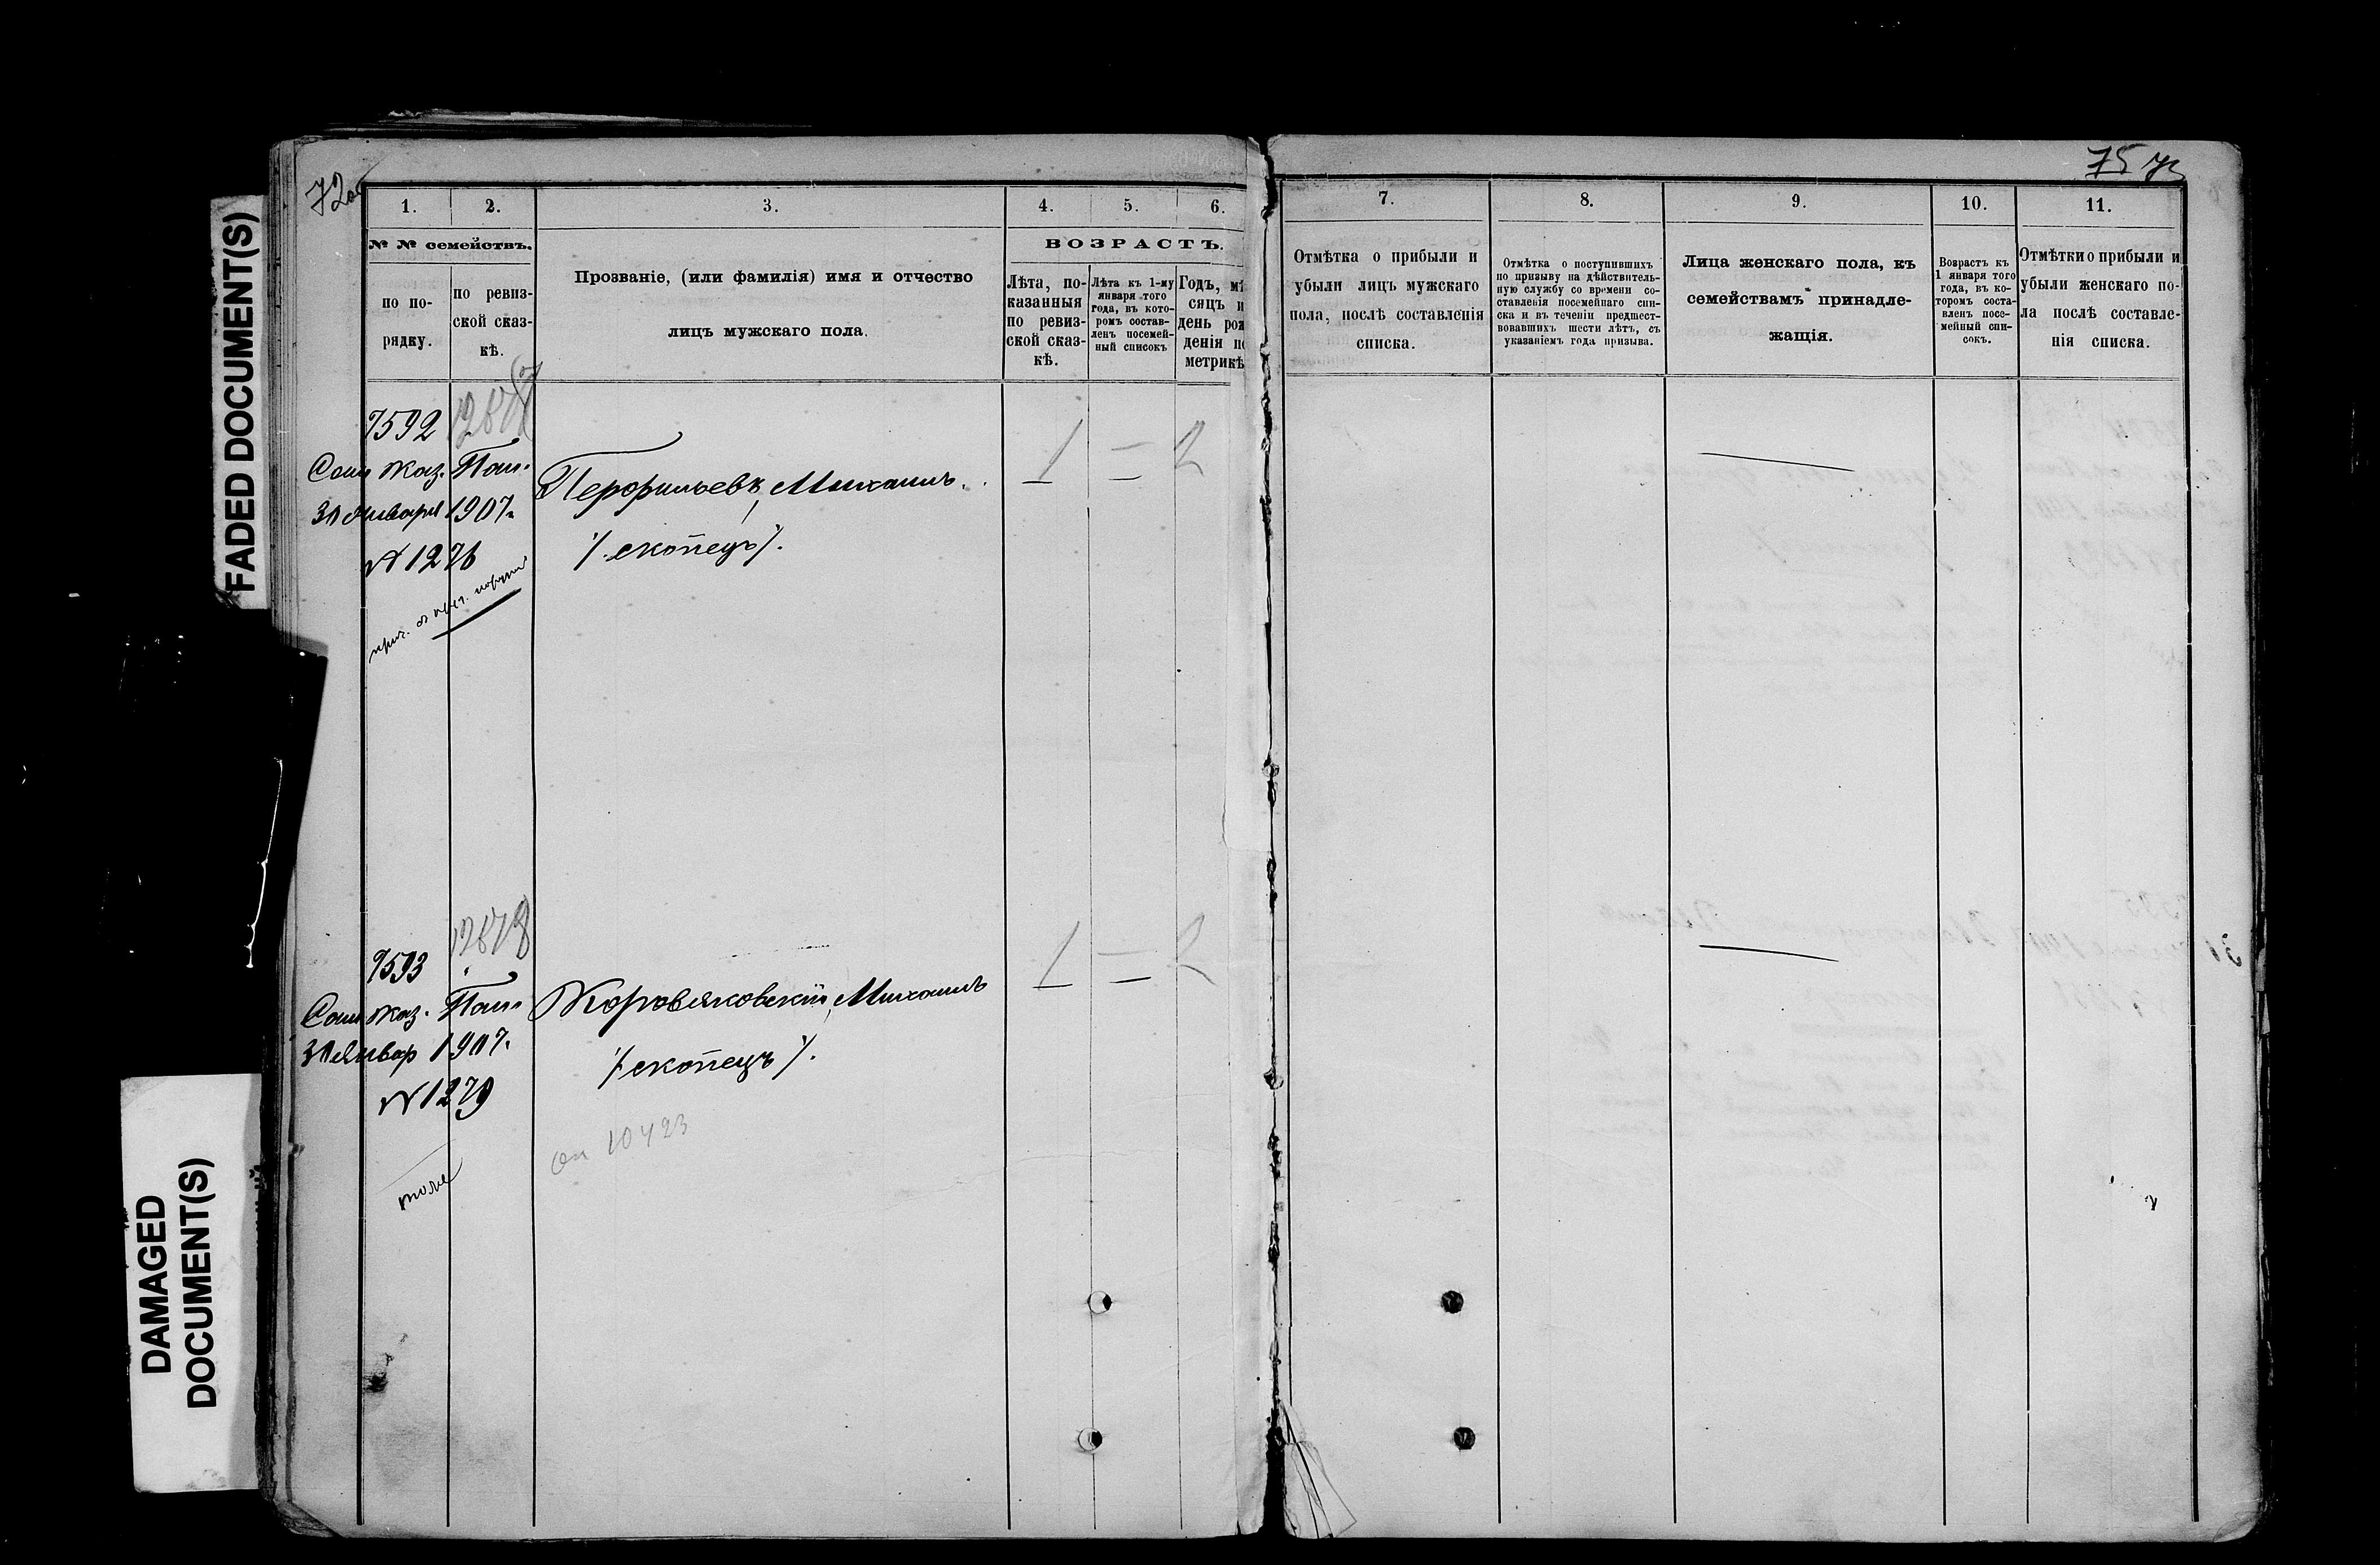 FADED DOCUMENT(S)
DAMAGED
DOCUMENT(S)
72об
1. 2. 3. 4. 5. 6.
№ № семействъ.
по по-
рядку.
по ревиз-
ской сказ-
кѣ.
Прозваніе, (или фамилія) имя и отчество
лицъ мужскаго пола.
ВОЗРАСТЪ.
Лѣта, по-
казанныя
по ревиз-
ской сказ-
кѣ.
Лѣта къ 1-му
января того
года, въ кото-
ромъ состав-
ленъ посемей-
ный списокъ
Годъ, мѣ
сяцъ и
день рож
денія по
метрикѣ
7592
Каз. Пал.
31 Января 1907.
№ 1276
Перфильевъ, Михаилъ.
/. скопецъ /.
1 – 2
7593 12878
Каз. Пал.
31 Январ 1907.
№ 1279
Коровяковскій, Михаилъ
/. скопецъ /.
1 – 2
10423
тоже
75 73
7. 8. 9. 10. 11.
Отмѣтка о прибыли и
убыли лицъ мужскаго
пола, послѣ составленія
списка.
Отмѣтка о поступившихъ
по призыву на дѣйствитель-
ную службу со времени со-
ставленія посемейнаго спи-
ска и въ теченіи предшест-
вовавшихъ шести лѣтъ, съ
указаніемъ года призыва.
Лица женскаго пола, къ
семействамъ принадле-
жащія.
Возрастъ къ
1 января того
года, въ ко-
торомъ соста-
вленъ посе-
мейный спи-
сокъ.
Отмѣтки о прибыли и
убыли женскаго по-
ла послѣ составле-
нія списка.